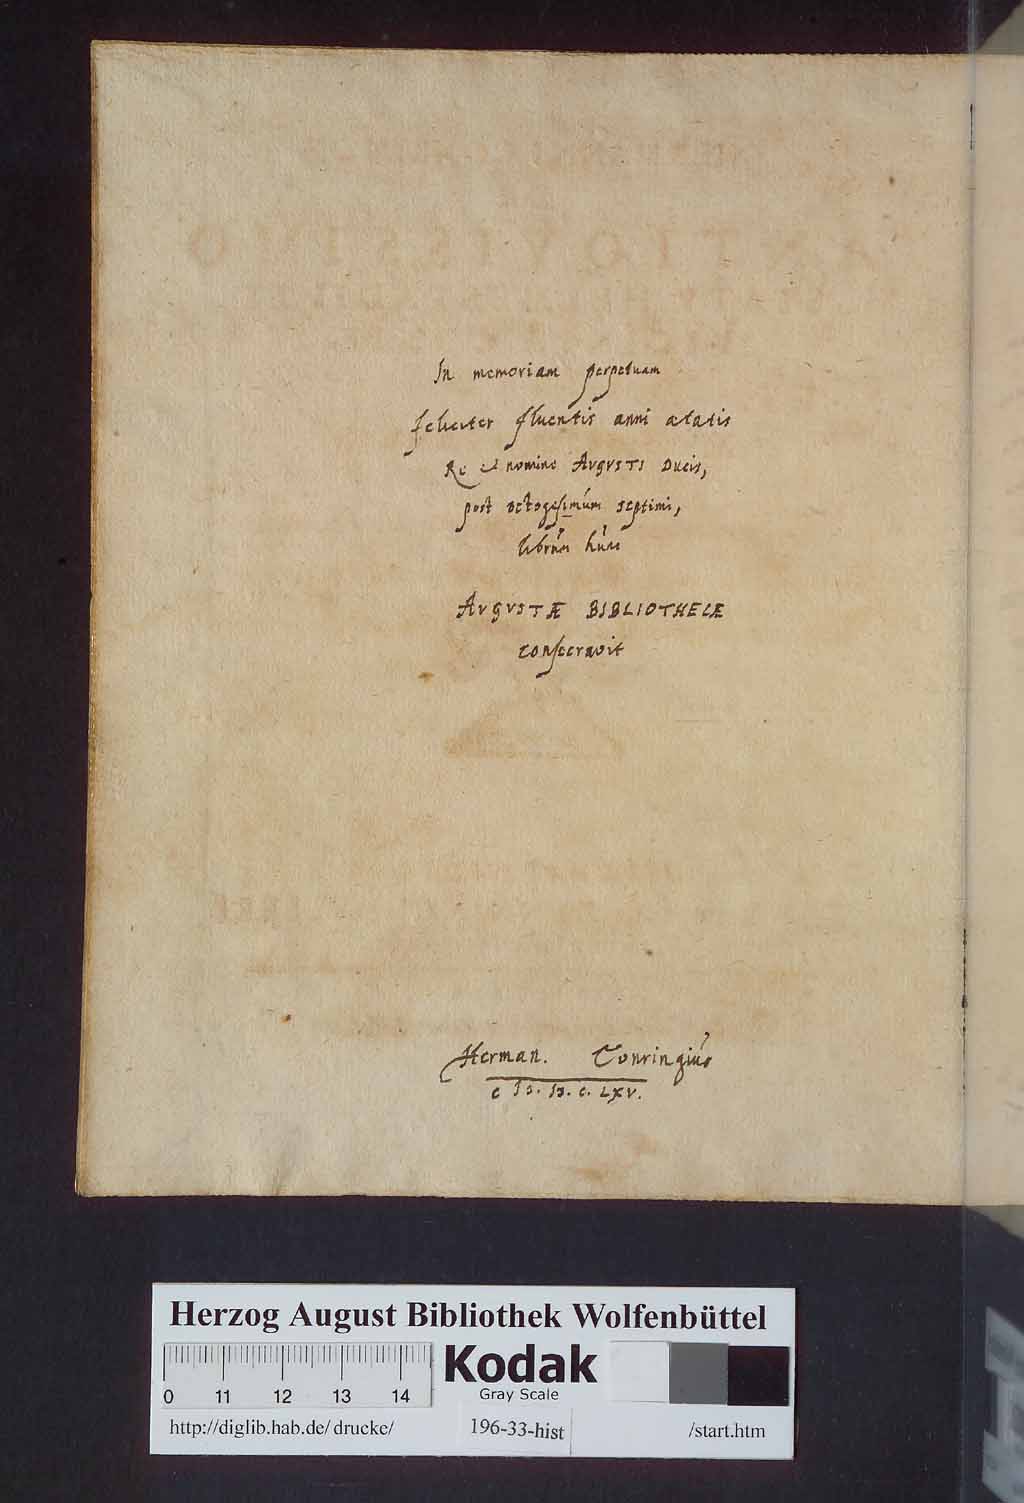 In memoriam perpetuam
feliciter fluentis anni ætatis
Re et nomine AVGVSTI Ducis,
post octogesimúm septimi,
librúm húnc
AVGVSTÆ BIBLIOTHECÆ
consecravit
Herman. Conringiús
CIƆ. IƆ. C. LXV.
Herzog August Bibliothek Wolfenbüttel
Kodak
Gray Scale
0 11 12 13 14
http://diglib.hab.de/drucke/ 196-33-hist /start.htm